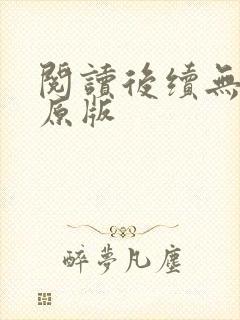 閱讀後續無
原版
醉夢凡塵